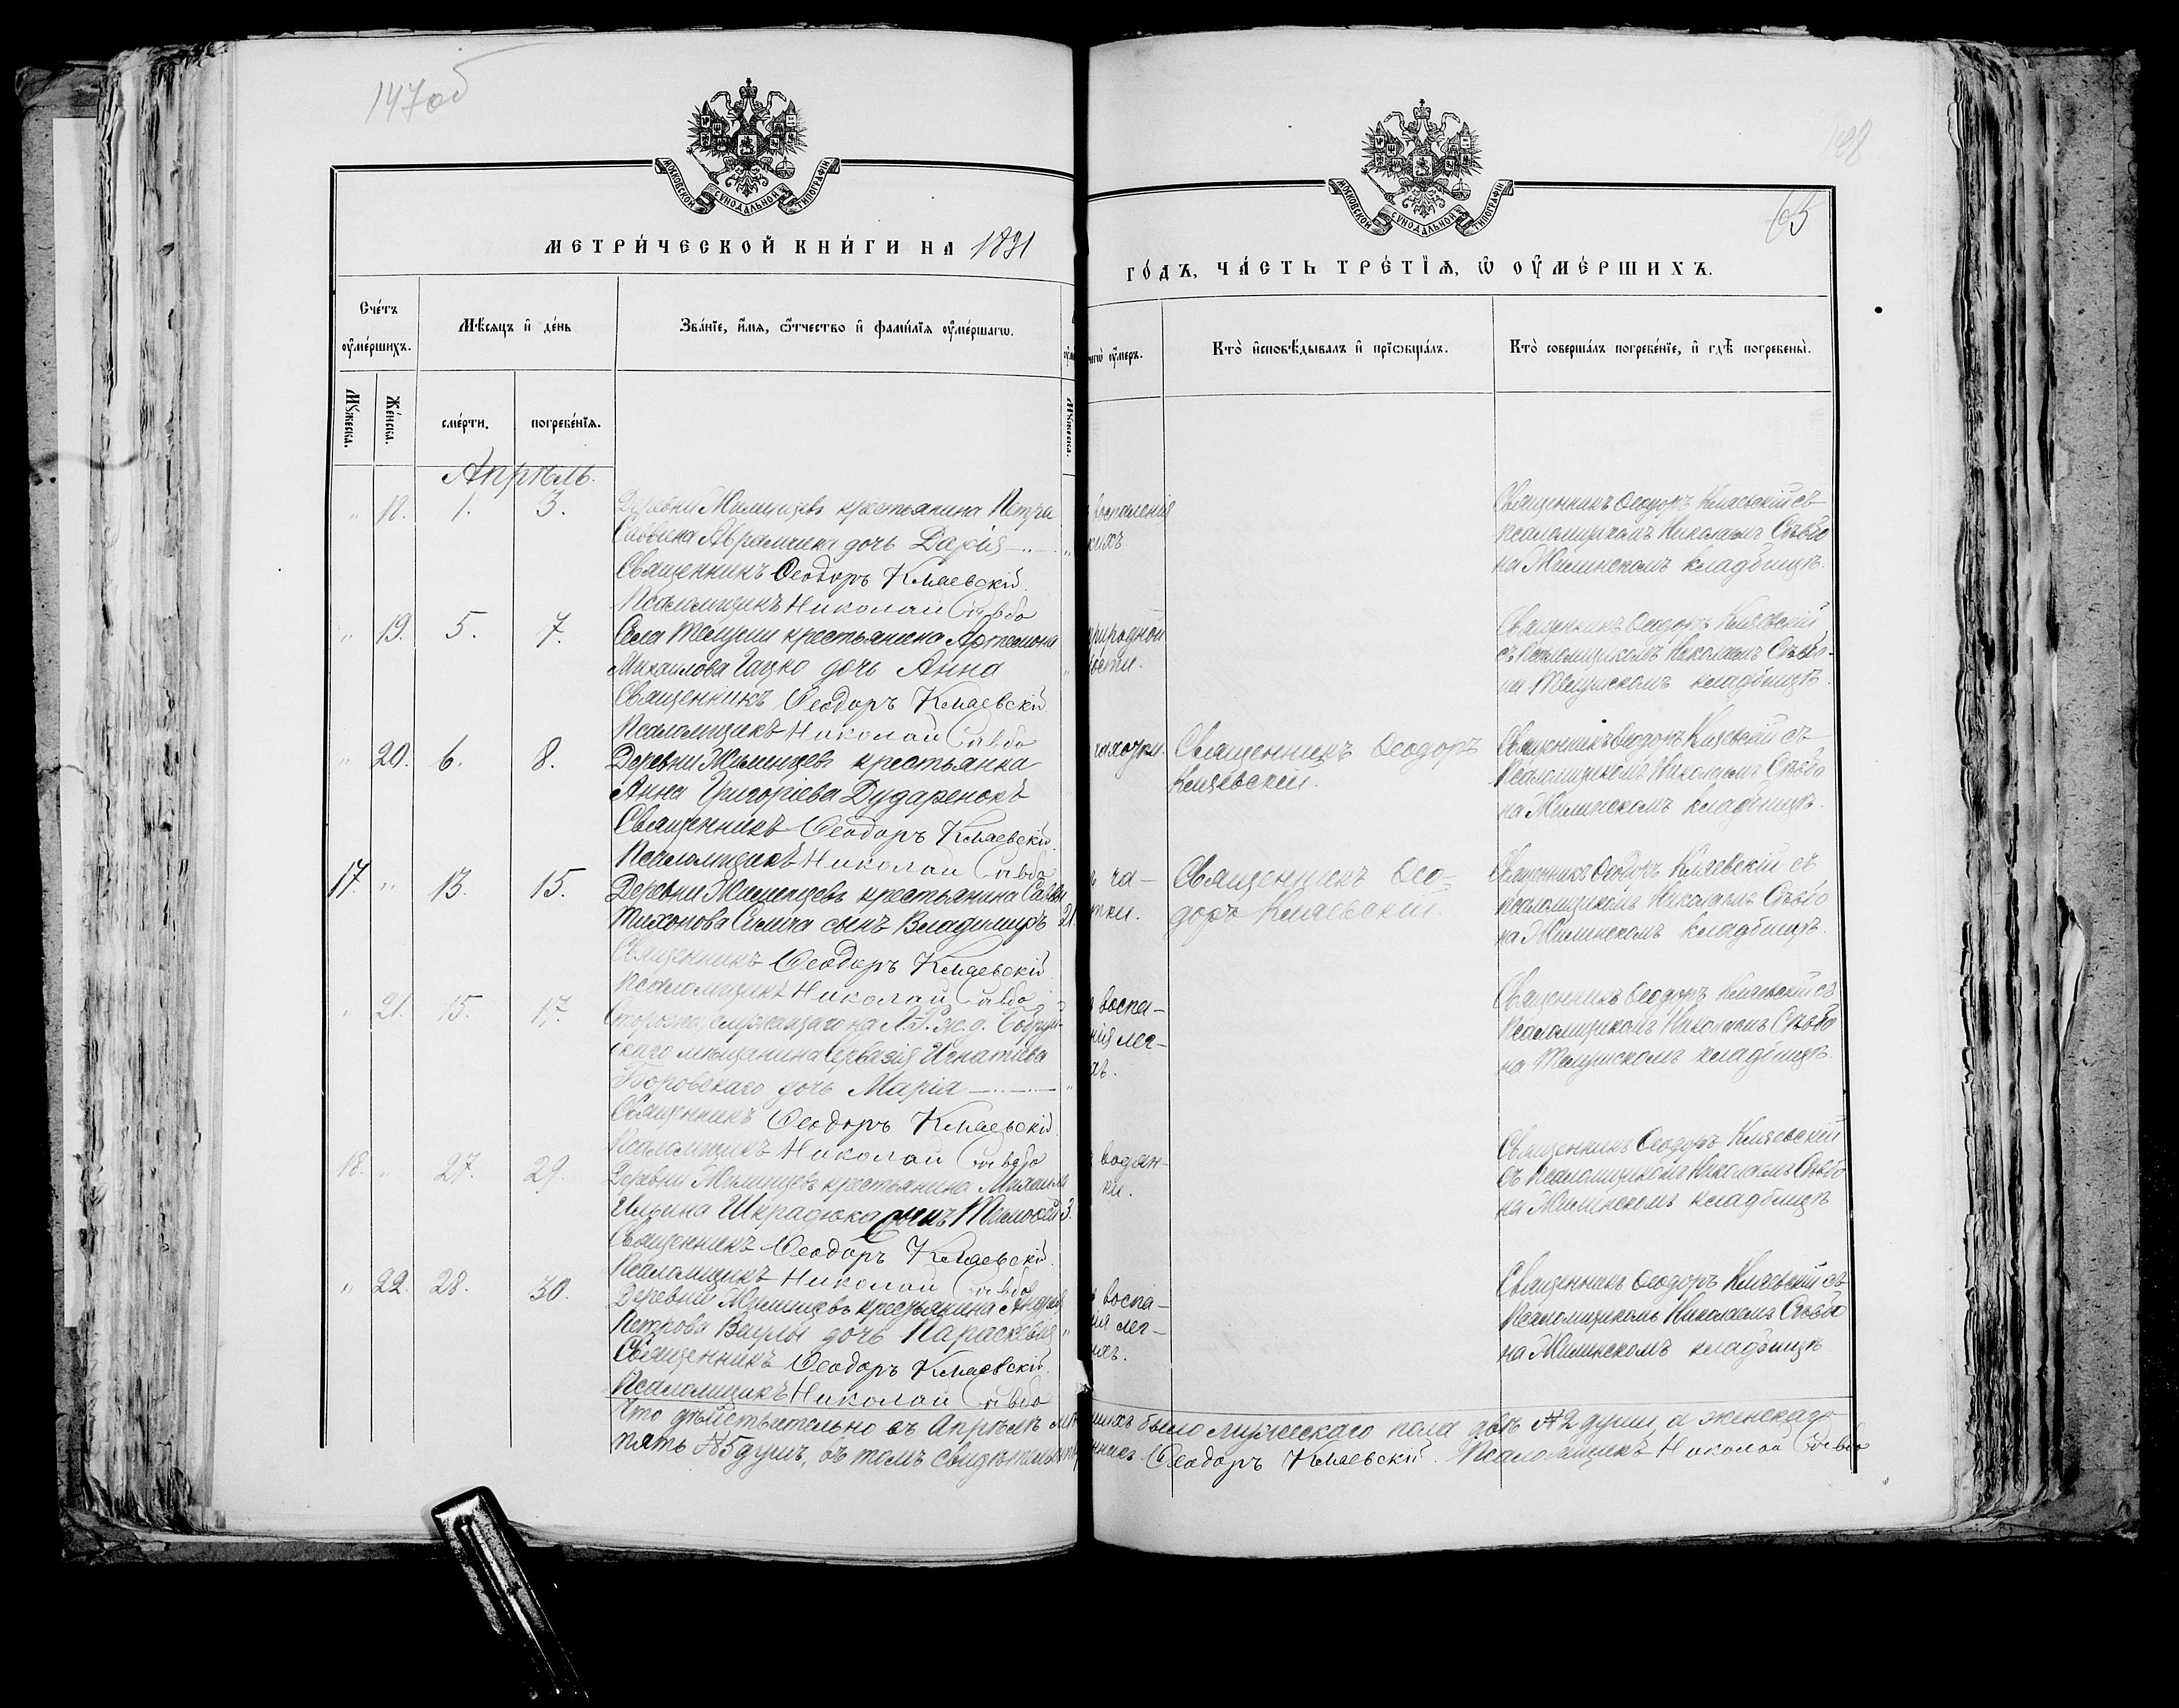 147об
МОСКОВСКОЙ СѴНОДАЛЬНОЙ ТИПОГРАФІИ
МЕТРИ́ЧЕСКОЙ КНИ́ГИ НА 1891
Сче́тъ оу҆ме́ршихъ.
Мѣ́сяцъ и҆ де́нь
Зва́нїе, и҆́мя, ѻ҆́тчество и҆ фами́лїя оу҆ме́ршагѡ.
Мꙋ́жеска.
Же́нска.
сме́рти.
погребе́нїя.
Мꙋ́жеска.
Апрѣль.
" 18. 1. 3. Деревни Жилицевъ крестьянина Петра
Саввина Аврамчика дочь Дарія
Священникъ Ѳеодоръ Княевскій.
Псаломщикъ Николай Савбо
" 19. 5. 7. Села Телуши крестьянина Артемона
Михаилова Гацко дочь Анна
Священникъ Ѳеодоръ Княевскій.
Псаломщикъ Николай Савбо
" 20. 6. 8. Деревни крестьянка
Анна Григоріева Дударенокъ
Священникъ Ѳеодоръ Княевскій.
Псаломщикъ Николай Савбо
17. " 13. 15. Деревни крестьянина Саввы
Тихонова сынъ Владимиръ 21.
Священникъ Ѳеодоръ Княевскій
Псаломщикъ Николай Савбо
" 21. 15. 17. Сторожа, служащаго на Л.-Р. ж. д. Бобруй-
скаго мѣщанина Гервазія Игнатіева
Боровскаго дочь Марія
Священникъ Ѳеодоръ Княевскій.
Псаломщикъ Николай Савбо
18. " 27. 29. Деревни крестьянина Михаила
Ильина Шкрадюка сынъ Тимоѳей 3.
Священникъ Ѳеодоръ Княевскій.
Псаломщикъ Николай Савбо
" 22. 28. 30. Деревни крестьянина Андрея
Петрова дочь Параскевія "
Священникъ Ѳеодоръ Княевскій.
Псаломщикъ Николай Савбо
Что дѣйствительно въ Апрѣлѣ
пять №5 душъ, въ томъ
148
65
МОСКОВСКОЙ СѴНОДАЛЬНОЙ ТИПОГРАФІИ
ГО́ДЪ, ЧА́СТЬ ТРЕ́ТЇѦ, Ѡ҆ ОУ҆МЕ́РШИХЪ.
чегѡ̀ оу҆́меръ.
Кто̀ и҆сповѣ́дывалъ и҆ прїѻбща́лъ.
Кто̀ соверша́лъ погребе́нїе, и҆ гдѣ̀ погребены̀.
воспаленія
Священникъ Ѳеодоръ Княевскій съ
псаломщикомъ Николаемъ Савбо
на кладбищѣ.
природной
Священникъ Ѳеодоръ Княевскій
съ псаломщикомъ Николаемъ Савбо
на Телушскомъ кладбищѣ.
чахотки. Священникъ Ѳеодоръ
Княевскій.
Священникъ Ѳеодоръ Княевскій съ
Псаломщикомъ Николаемъ Савбо
на кладбищѣ.
ча-
тки.
Священникъ Ѳео-
доръ Княевскій.
Священникъ Ѳеодоръ Княевскій съ
псаломщикомъ Николаемъ Савбо
на кладбищѣ.
воспа-
нія лег-
Священникъ Ѳеодоръ Княевскій съ
Псаломщикомъ Николаемъ Савбо
на Телушскомъ кладбищѣ.
водян-
ки.
Священникъ Ѳеодоръ Княевскій
съ Псаломщикомъ Николаемъ Савбо
на кладбищѣ
воспа-
лег-
Священникъ Ѳеодоръ Княевскій съ
Псаломщикомъ Николаемъ Савбо
на кладбищѣ
было мужескаго пола двѣ №2 души, а женскаго
Ѳеодоръ Княевскій. Псаломщикъ Николай Савбо